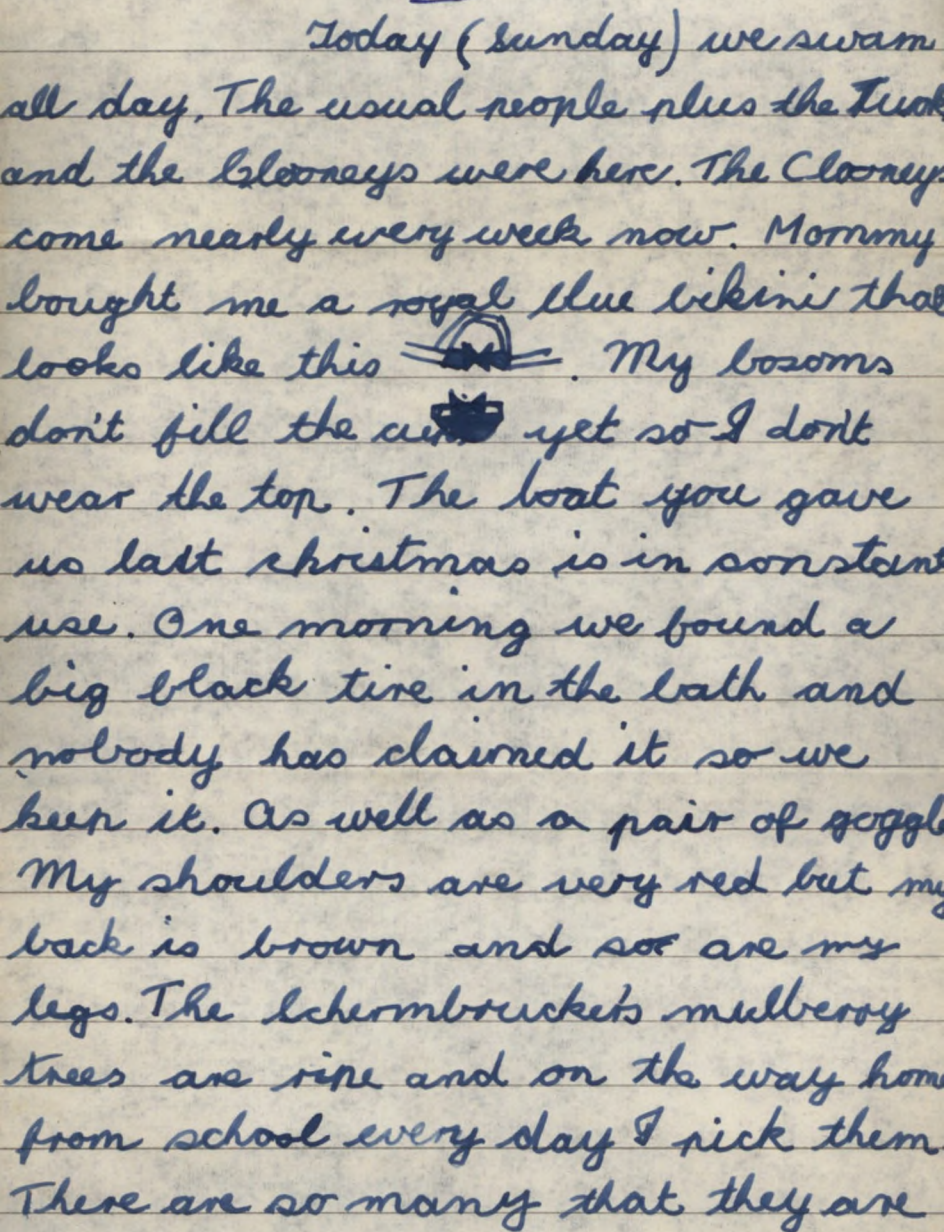 Today (Sunday) we swam
all day. The usual people plus the
and the Clooneys were here. The Clooneys
come nearly every week now. Mommy
bought me a royal blue bikini that
looks like this . My bosoms
don't fill the yet so I don't
wear the top. The boat you gave
us last christmas is in constant
use. One morning we found a
big black tire in the bath and
nobody has claimed it so we
keep it. As well as a pair of goggl
My shoulders are very red but my
back is brown and so are my
legs. The Schermbrucker's mulberry
trees are ripe and on the way home
from school every day I pick them.
There are so many that they are